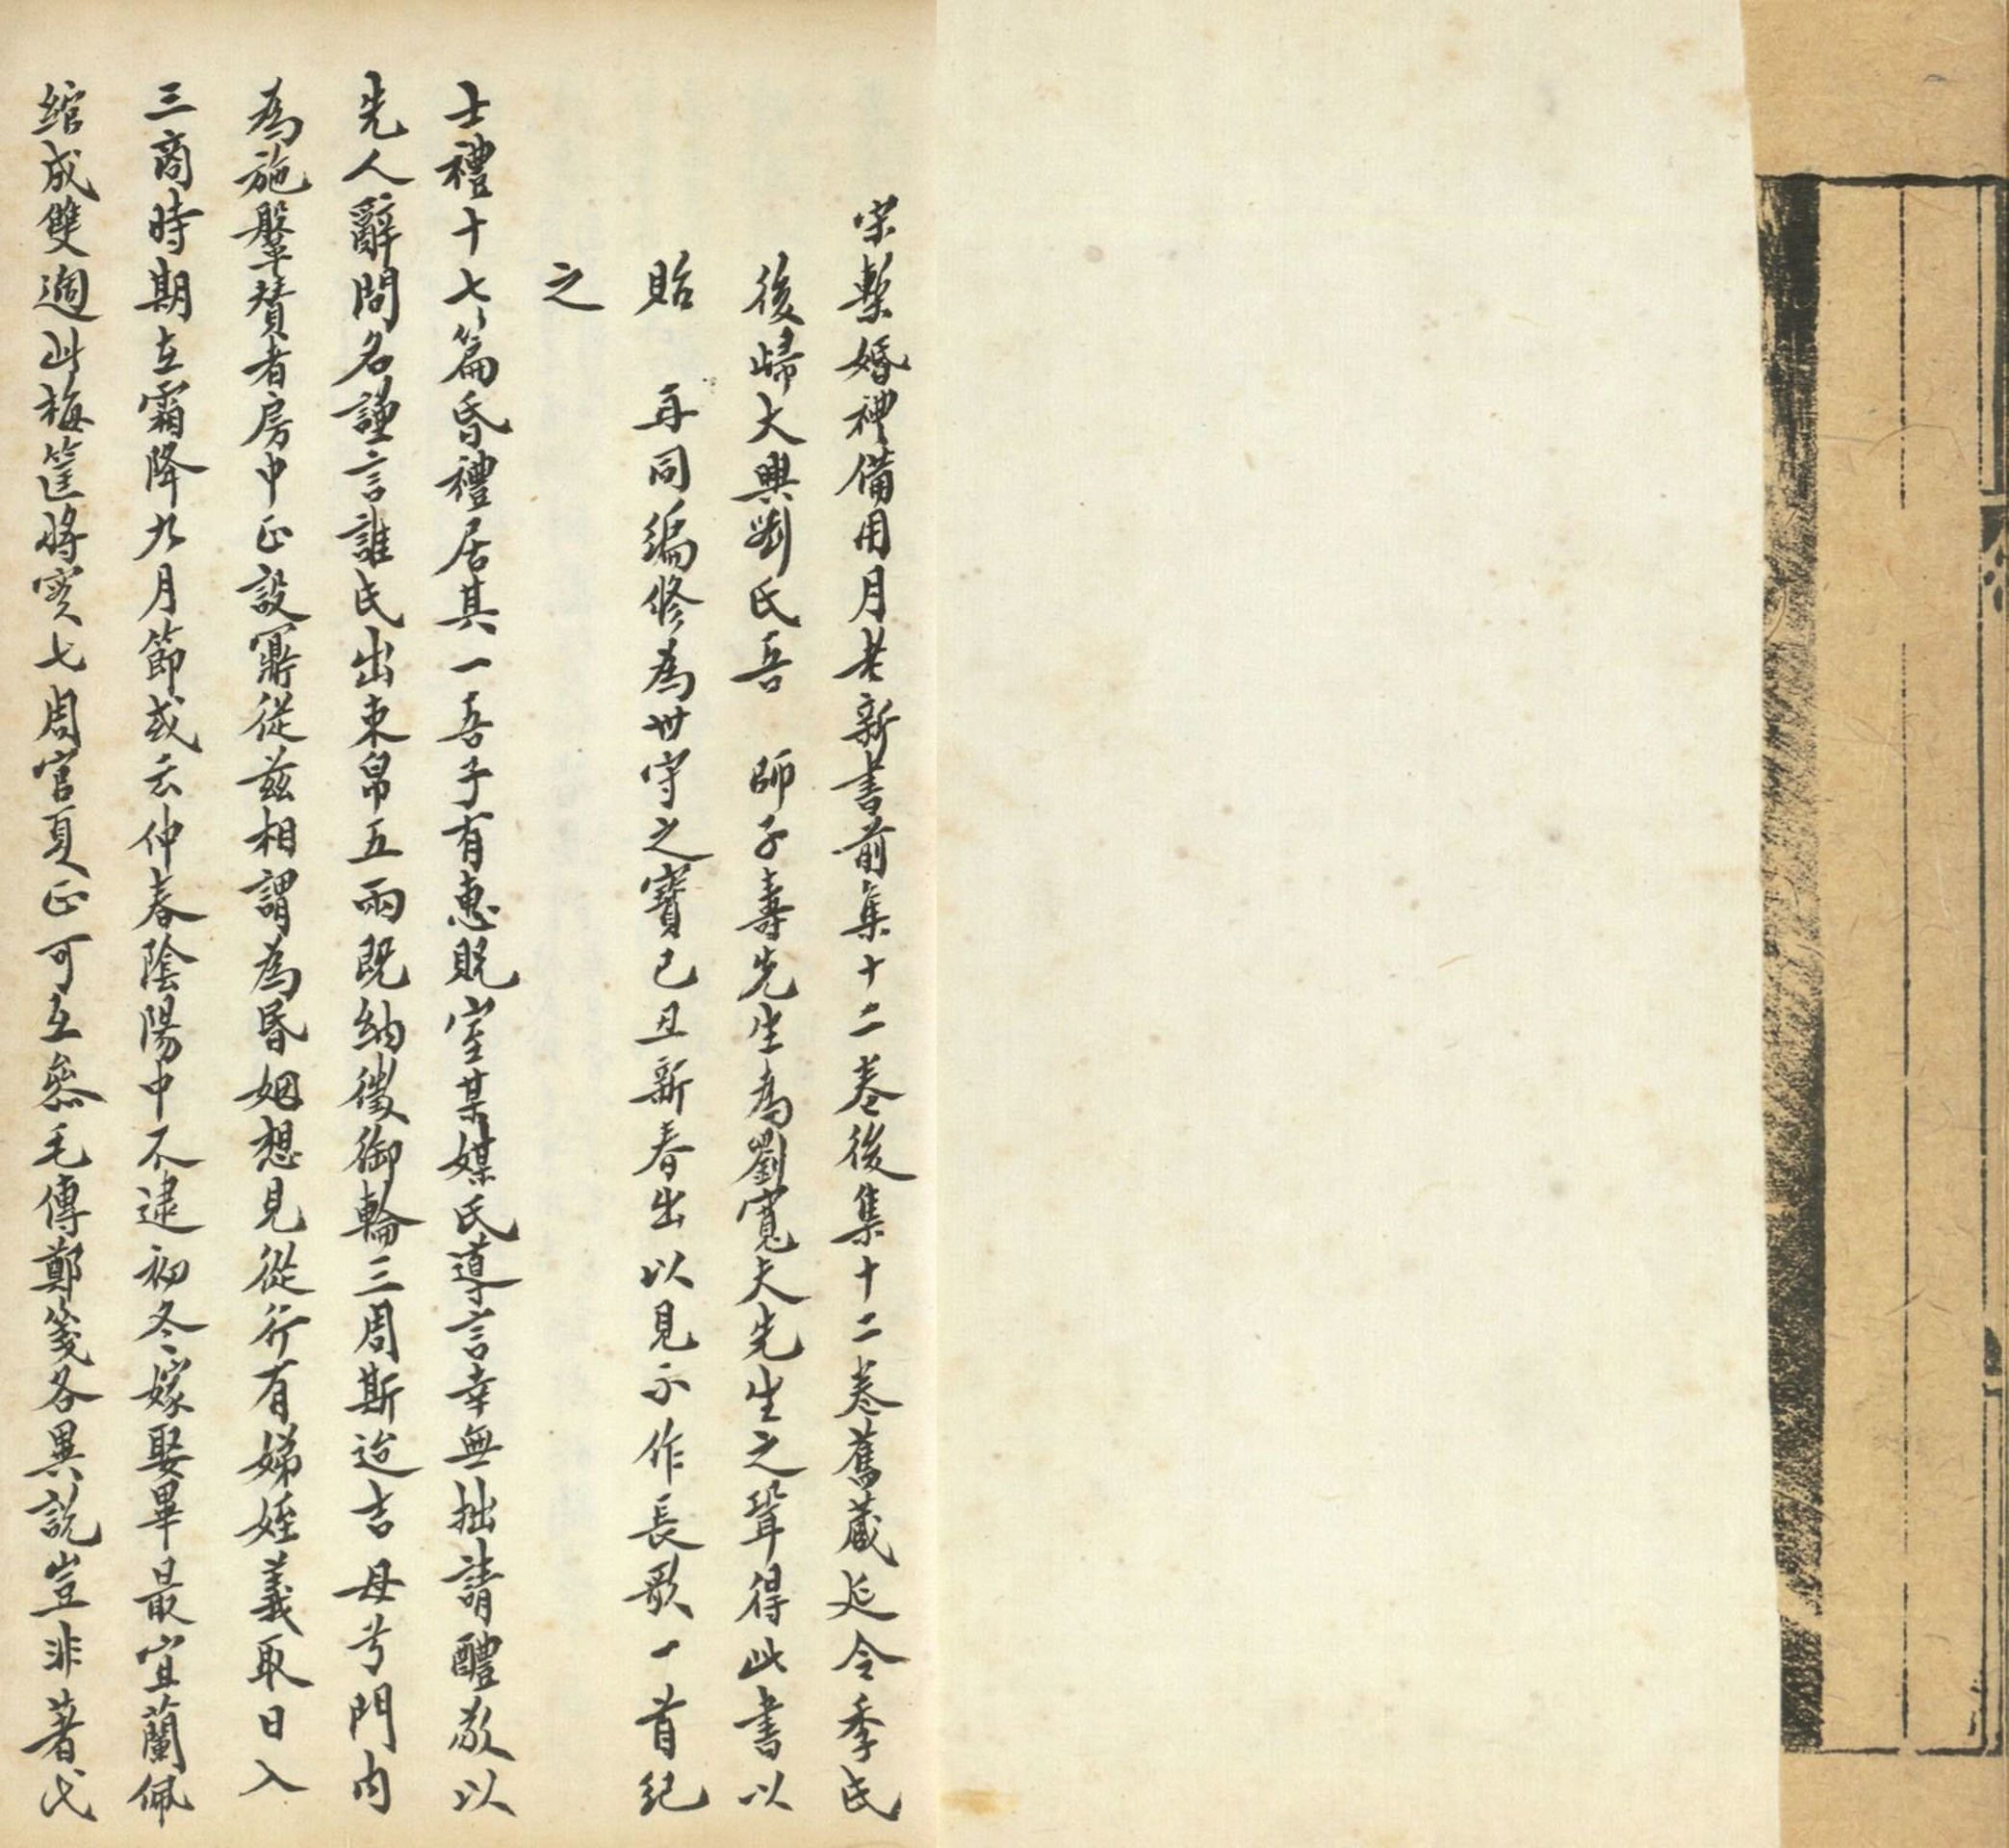 宋槧婚禮備用月老新書前集十二卷後集十二卷舊藏延令季氏
後歸大興劉氏吾 師子壽先生為劉寬夫先生之壻得此書以
貽 再同編修為世守之寶己丑新春出以見示作長歌一首紀
之
士禮十七篇昏禮居其一吾子有惠貺室某媒氏導言幸無拙請醴敢以
先人辭問名謹言誰氏出束帛五兩既納徵御輪三周斯迨吉母兮門内
為施鞶贊者房中正設鼏從茲相謂為昏姻想見從行有娣姪義取日入
三商時期在霜降九月節或云仲春陰陽中不逮初冬嫁娶畢最宜蘭佩
綰成雙迴此梅筐將實七周官夏正可互參毛傳鄭箋各異說豈非著代